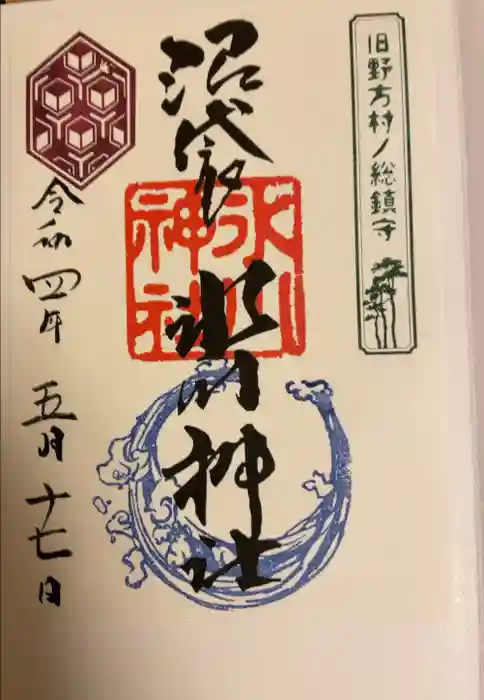 旧野方村ノ総鎮守
沼袋
氷川神社
氷川神社
令和四年 五月十七日